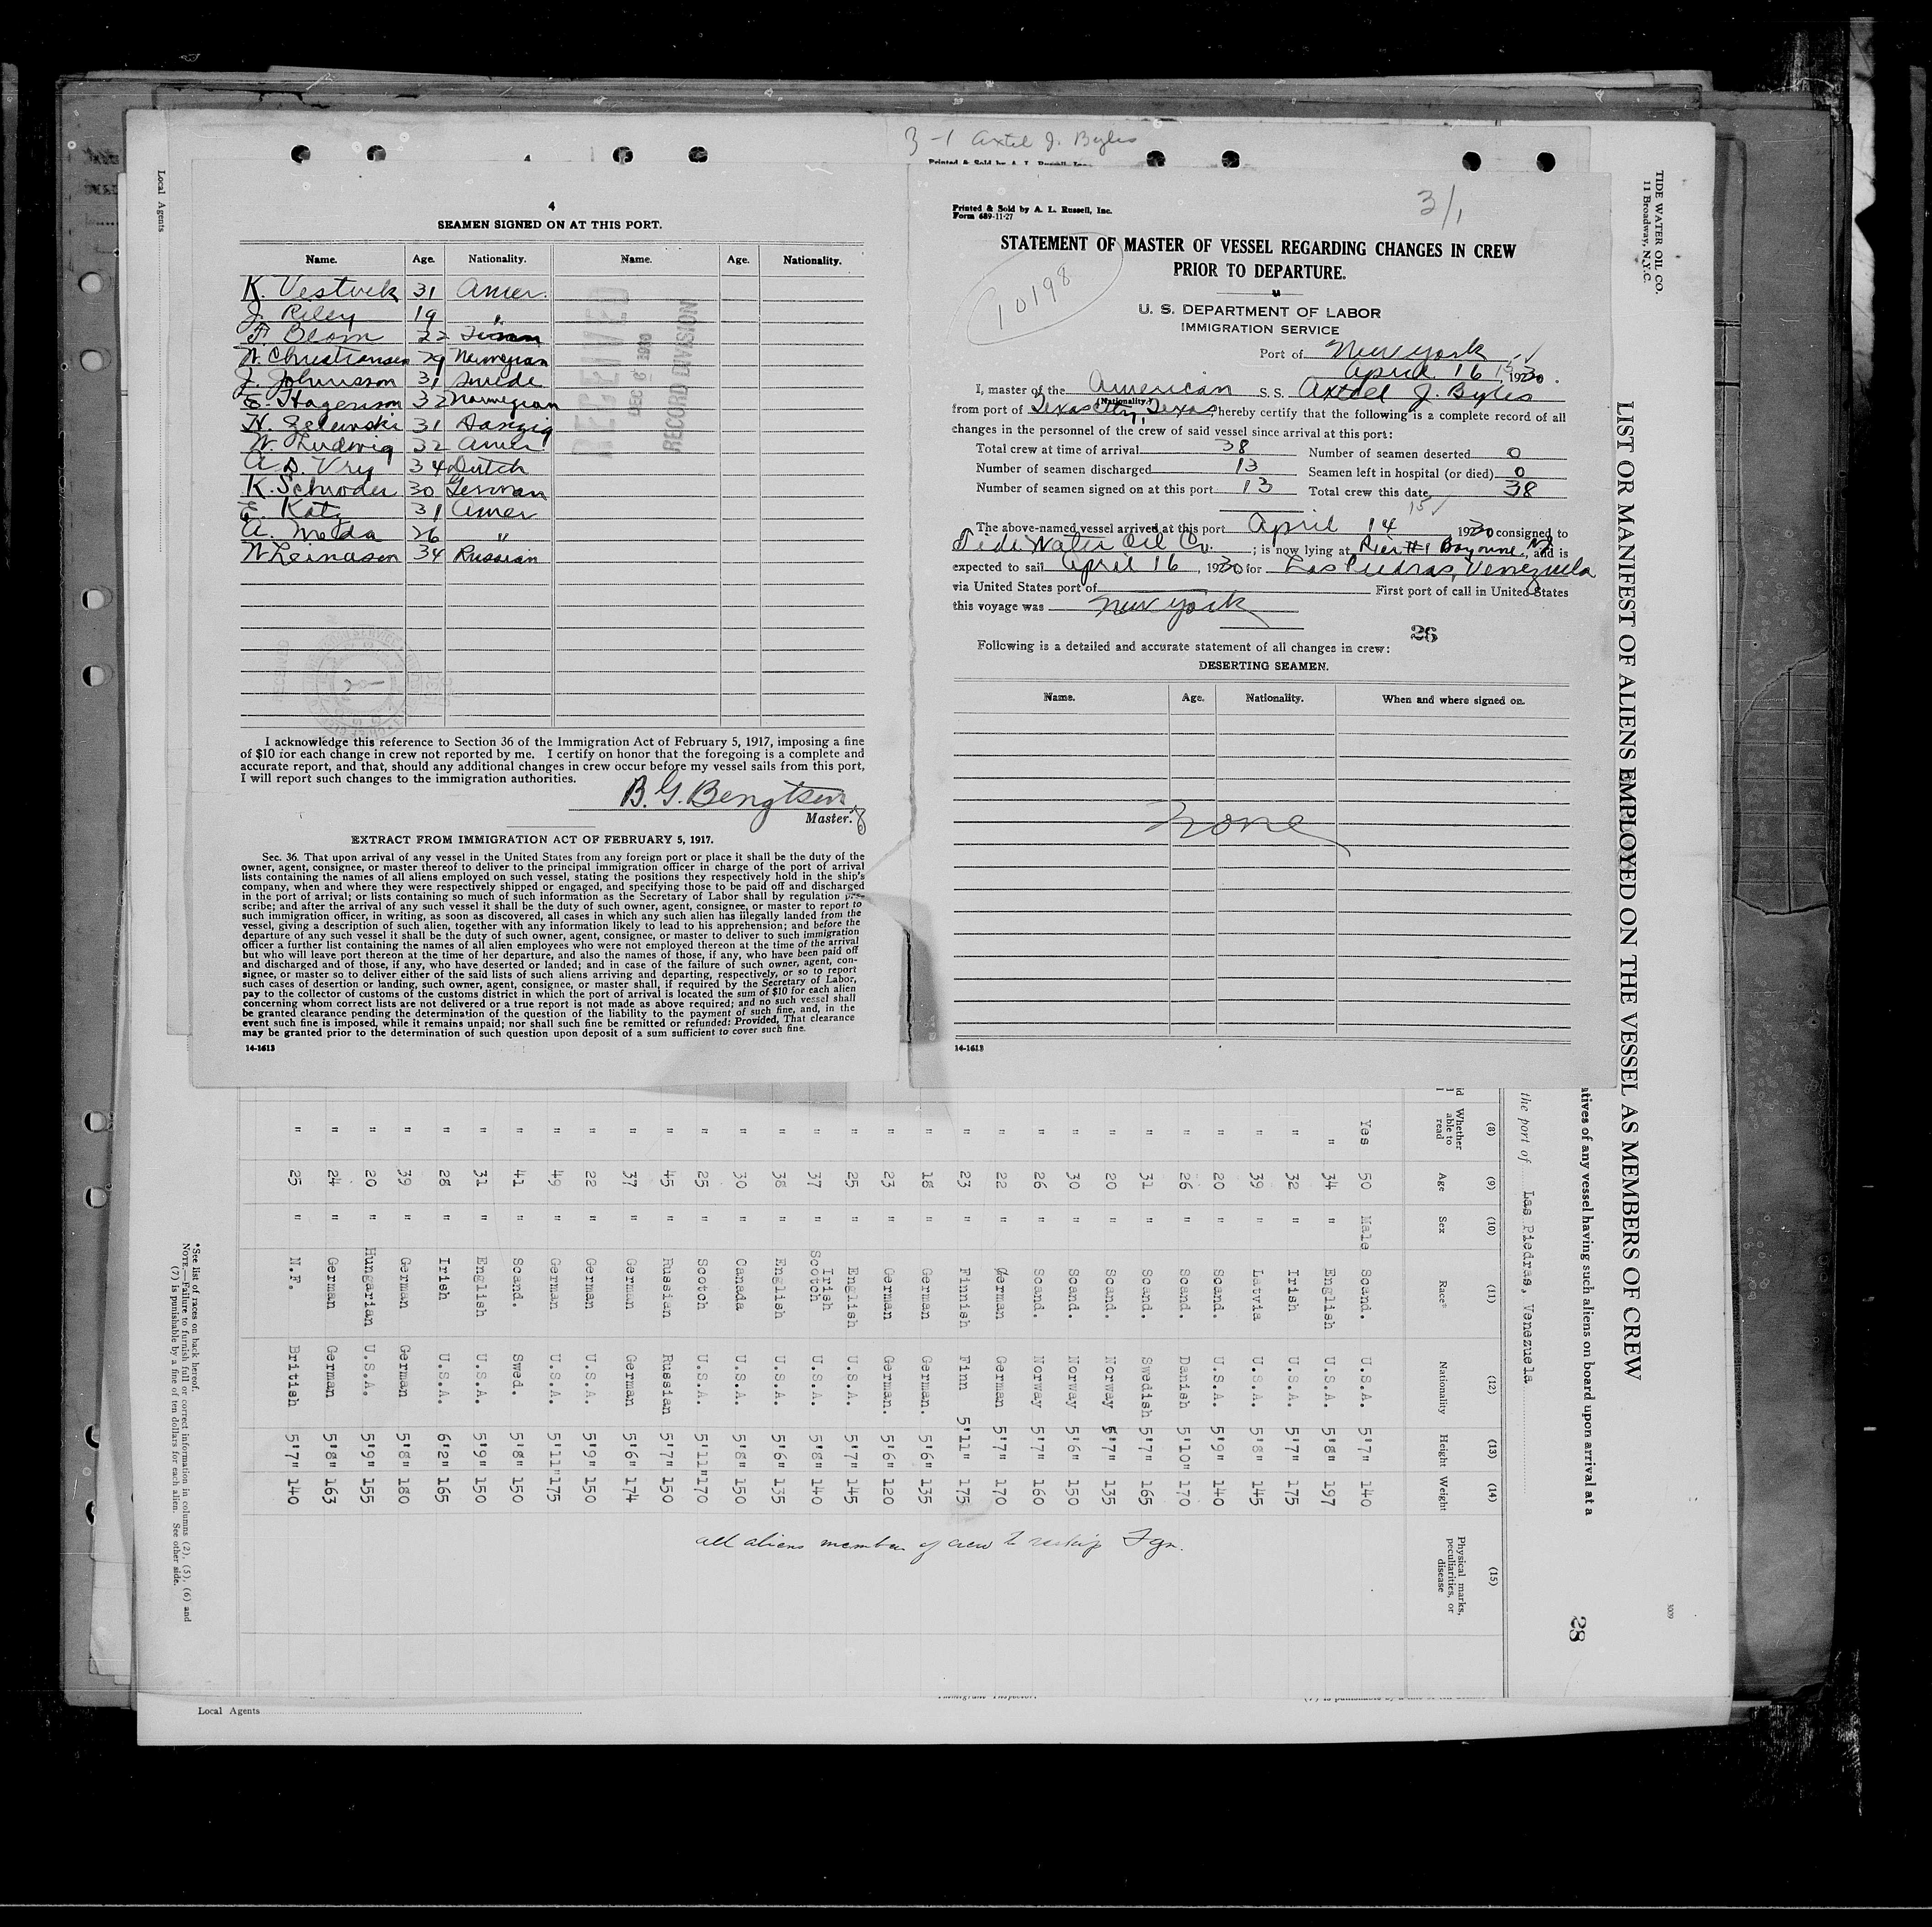 3-1 Axtel J. Byles
Printed & Sold by A. L. Russell, Inc.
Local Agents
4
SEAMEN SIGNED ON AT THIS PORT.
Name. Age. Nationality. Name. Age. Nationality.
K. Vestvik 31 Amer.
J. Riley 19 "
F. Blom 22
N. Christiansen 29 Norwegian
J. Johnsson 31 Swede
E. Hagenson 32 Norwegian
N. Zelewski 31 Danzig
W. Ludwig 32 Amer
A. D. Vry 34 Dutch
K. Schroder 30 German
E. Katz 31 Amer
A. 26 "
N Leinason 34 Russian
RECEIVED
DEC 6 1930
RECORD DIVISION
I acknowledge this reference to Section 36 of the Immigration Act of February 5, 1917, imposing a fine
of $10 for each change in crew not reported by me. I certify on honor that the foregoing is a complete and
accurate report, and that, should any additional changes in crew occur before my vessel sails from this port,
I will report such changes to the immigration authorities.
B. G. Bengtson
Master.
EXTRACT FROM IMMIGRATION ACT OF FEBRUARY 5, 1917.
Sec. 36. That upon arrival of any vessel in the United States from any foreign port or place it shall be the duty of the
owner, agent, consignee, or master thereof to deliver to the principal immigration officer in charge of the port of arrival
lists containing the names of all aliens employed on such vessel, stating the positions they respectively hold in the ship's
company, when and where they were respectively shipped or engaged, and specifying those to be paid off and discharged
in the port of arrival; or lists containing so much of such information as the Secretary of Labor shall by regulation pre-
scribe; and after the arrival of any such vessel it shall be the duty of such owner, agent, consignee, or master to report to
such immigration officer, in writing, as soon as discovered, all cases in which any such alien has illegally landed from the
vessel, giving a description of such alien, together with any information likely to lead to his apprehension; and before the
departure of any such vessel it shall be the duty of such owner, agent, consignee, or master to deliver to such immigration
officer a further list containing the names of all alien employees who were not employed thereon at the time of the arrival
but who will leave port thereon at the time of her departure, and also the names of those, if any, who have been paid off
and discharged and of those, if any, who have deserted or landed; and in case of the failure of such owner, agent, con-
signee, or master so to deliver either of the said lists of such aliens arriving and departing, respectively, or so to report
such cases of desertion or landing, such owner, agent, consignee, or master shall, if required by the Secretary of Labor,
pay to the collector of customs of the customs district in which the port of arrival is located the sum of $10 for each alien
concerning whom correct lists are not delivered or a true report is not made as above required; and no such vessel shall
be granted clearance pending the determination of the question of the liability to the payment of such fine, and, in the
event such fine is imposed, while it remains unpaid; nor shall such fine be remitted or refunded: Provided, That clearance
may be granted prior to the determination of such question upon deposit of a sum sufficient to cover such fine.
14-1613
Printed & Sold by A. L. Russell, Inc.
Form 689-11-27
3/1
STATEMENT OF MASTER OF VESSEL REGARDING CHANGES IN CREW
PRIOR TO DEPARTURE.
10198
U. S. DEPARTMENT OF LABOR
IMMIGRATION SERVICE
Port of New York
April 16 15 1930.
I, master of the American S. S. Axtell J. Byles
(Nationality.)
from port of Texas City, Texas, hereby certify that the following is a complete record of all
changes in the personnel of the crew of said vessel since arrival at this port:
Total crew at time of arrival 38 Number of seamen deserted 0
Number of seamen discharged 13 Seamen left in hospital (or died) 0
Number of seamen signed on at this port 13 Total crew this date 38
15
The above-named vessel arrived at this port April 14 1930 consigned to
Tide Water Oil Co. ; is now lying at Pier #1 Bayonne, NJ, and is
expected to sail April 16, 1930 for Las Piedras, Venezuela
via United States port of First port of call in United States
this voyage was New York
26
Following is a detailed and accurate statement of all changes in crew:
DESERTING SEAMEN.
Name. Age. Nationality. When and where signed on.
None
14-1613
TIDE WATER OIL CO.
11 Broadway, N.Y.C.
LIST OR MANIFEST OF ALIENS EMPLOYED ON THE VESSEL AS MEMBERS OF CREW
atives of any vessel having such aliens on board upon arrival at a
the port of Las Piedras, Venezuela
28
3009
(8) (9) (10) (11) (12) (13) (14) (15)
Whether able to read Age Sex Race* Nationality Height Weight Physical marks, peculiarities, or disease
Yes 50 Male Scand. U.S.A. 5'7" 140
" 34 " English U.S.A. 5'8" 197
" 32 " Irish U.S.A. 5'7" 175
" 39 " Latvia U.S.A. 5'8" 145
" 20 " Scand. U.S.A. 5'9" 140
" 26 " Scand. Danish 5'10" 170
" 31 " Scand. Swedish 5'7" 165
" 20 " Scand. Norway 5'7" 135
" 30 " Scand. Norway 5'6" 150
" 26 " Scand. Norway 5'7" 160
" 22 " German German 5'7" 170
" 23 " Finnish Finn 5'11" 175
" 18 " German German. 5'6" 135
" 23 " German German. 5'6" 120
" 25 " English U.S.A. 5'7" 145
" 37 " Irish Scotch U.S.A. 5'8" 140
" 38 " English U.S.A. 5'6" 135
" 30 " Canada U.S.A. 5'8" 150
" 25 " Scotch U.S.A. 5'11" 170
" 45 " Russian Russian 5'7" 150
" 37 " German German 5'6" 174
" 22 " German U.S.A. 5'9" 150
" 49 " German U.S.A. 5'11" 175
" 41 " Scand. Swed. 5'8" 150
" 31 " English U.S.A. 5'9" 150
" 28 " Irish U.S.A. 6'2" 165
" 39 " German German 5'8" 180
" 20 " Hungarian U.S.A. 5'9" 155
" 24 " German German 5'8" 163
" 25 " N.F. British 5'7" 140
all aliens members of crew to reship Fgn.
*See list of races on back hereof.
NOTE.—Failure to furnish full or correct information in columns (2), (5), (6) and
(7) is punishable by a fine of ten dollars for each alien. See other side.
Immigrant Inspector.
Local Agents